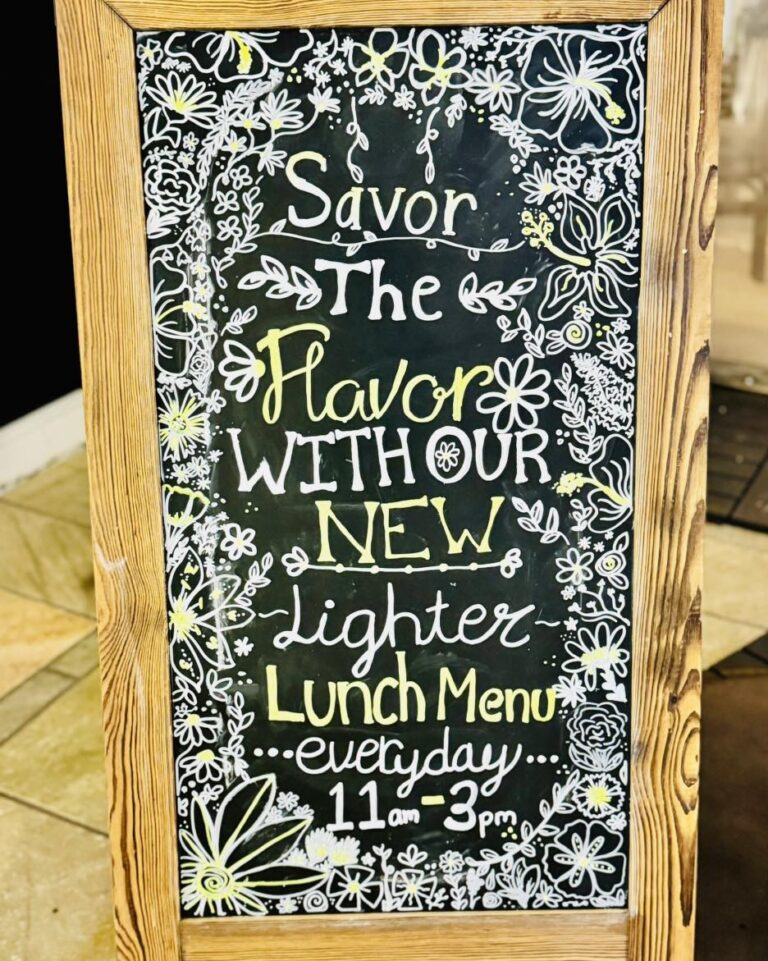 Savor
The
Flavor
WITH OUR
NEW
~Lighter~
Lunch Menu
...everyday...
11am-3pm